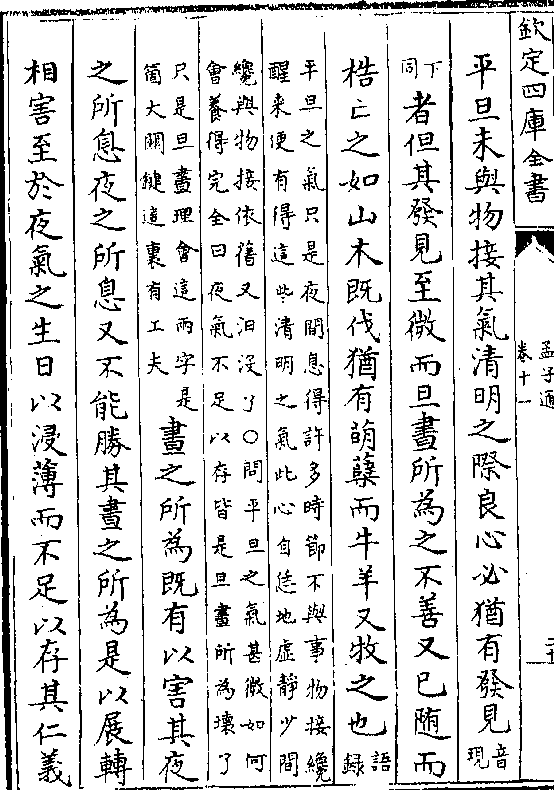 欽定四庫全書
孟子通
卷十一
平旦未與物接其氣清明之際良心必猶有發見音現
下同者但其發見至微而旦晝所為之不善又已随而
梏亡之如山木既伐猶有萌蘖而牛羊又牧之也語錄
平旦之氣只是夜間息得許多時節不與事物接纔
醒来便有得這些清明之氣此心自恁地虚靜少間
纔與物接依舊又汨没了○問平旦之氣甚微如何
會養得完全曰夜氣不足以存皆是旦晝所為壊了
只是旦晝理會這兩字是
箇大關鍵這裏有工夫
晝之所為既有以害其夜
之所息夜之所息又不能勝其晝之所為是以展轉
相害至於夜氣之生日以浸薄而不足以存其仁義